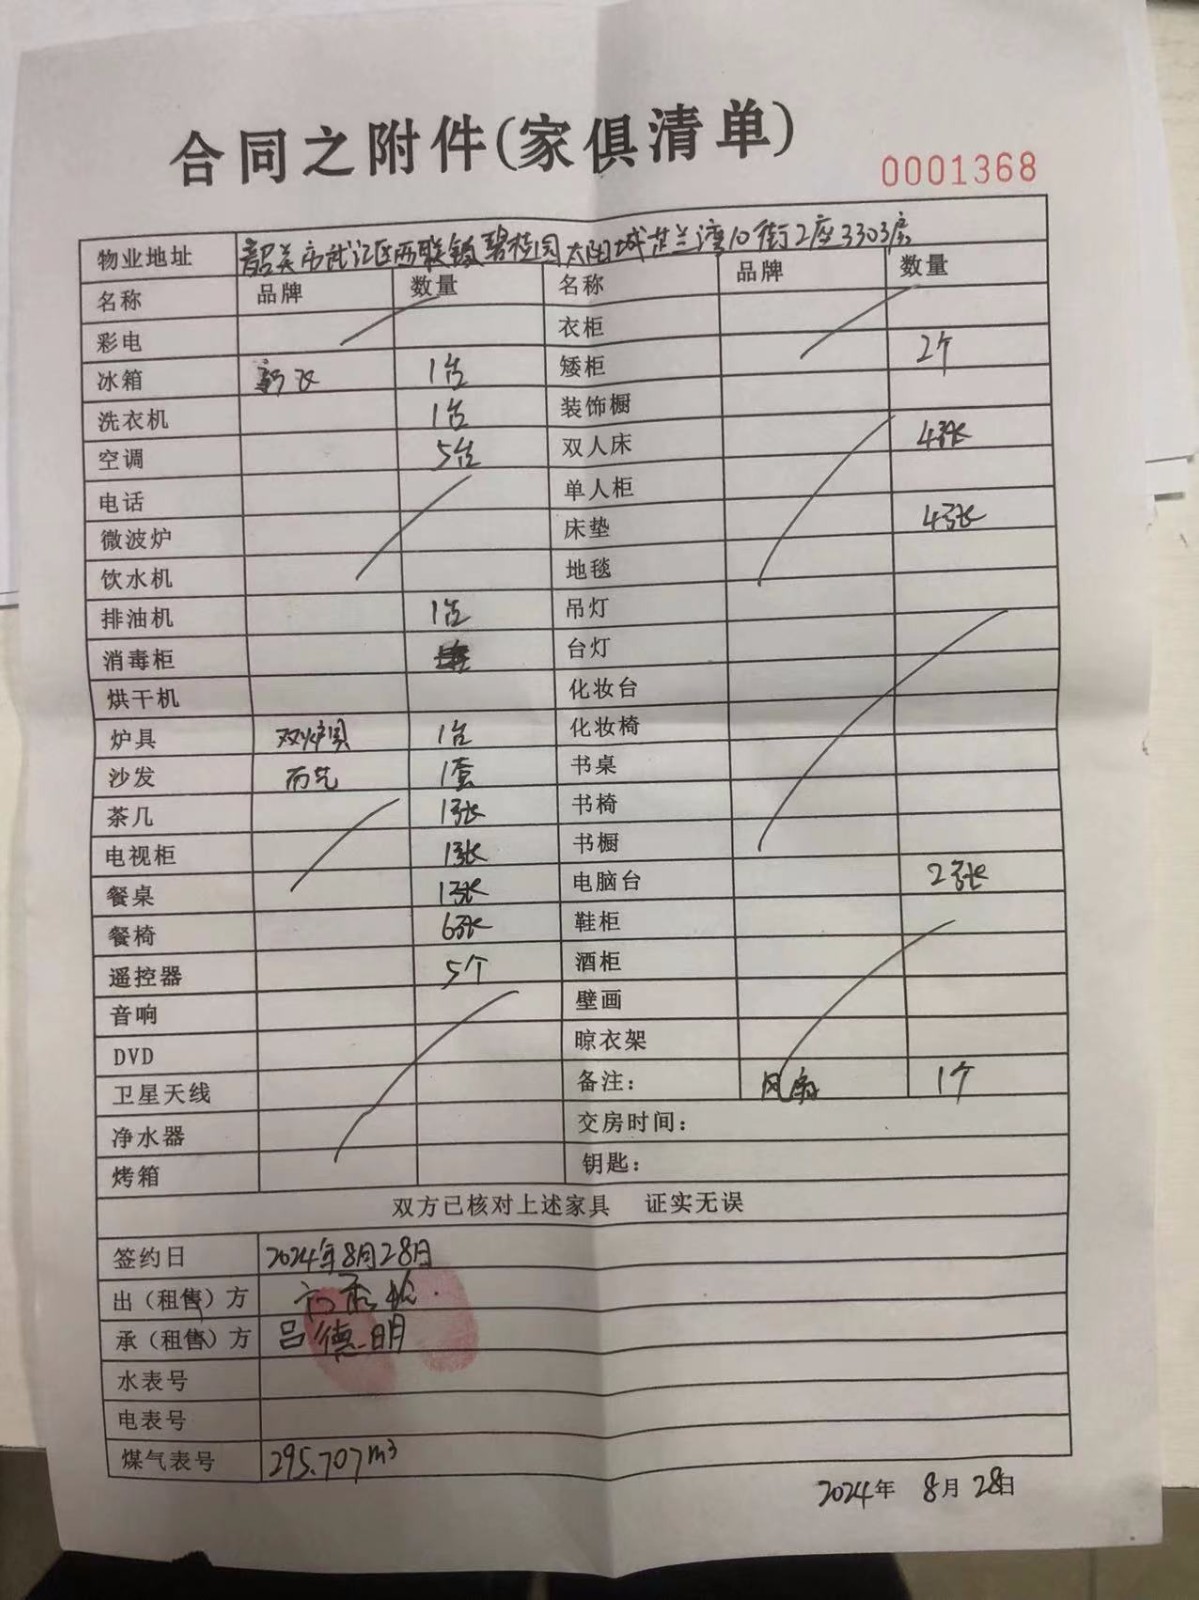 合同之附件(家俱清单)
0001368
物业地址 韶关市武江区西联镇碧桂园太阳城芷兰湾10街2座3303房
名称 品牌 数量 名称 品牌 数量
彩电 衣柜
冰箱 1台 矮柜 2个
洗衣机 1台 装饰橱
空调 5台 双人床 4张
电话 单人柜
微波炉 床垫 4张
饮水机 地毯
排油机 1台 吊灯
消毒柜 台灯
烘干机 化妆台
炉具 双炉具 1台 化妆椅
沙发 布艺 1套 书桌
茶几 1张 书椅
电视柜 1张 书橱
餐桌 1张 电脑台 2张
餐椅 6张 鞋柜
遥控器 5个 酒柜
音响 壁画
DVD 晾衣架
卫星天线 备注: 风扇 1个
净水器 交房时间:
烤箱 钥匙:
双方已核对上述家具 证实无误
签约日 2024年8月28日
出（租售）方
承（租售）方 吕德明
水表号
电表号
煤气表号 295.707m³
2024年 8月 28日